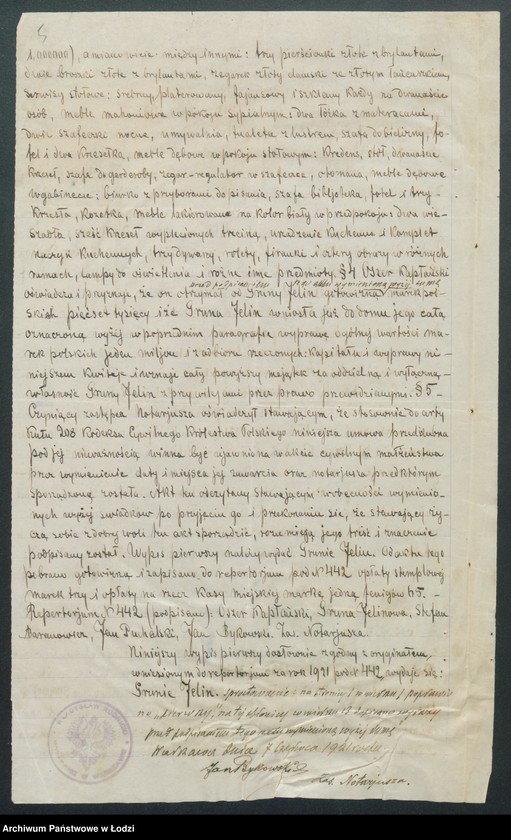 1,000000), a mianowicie między innymi: trzy pierścionki złote z brylantami,
dwie broszki złote z brylantami, zegarek złoty damski ze złotym łańcuszkiem,
serwisy stołowe: srebrny, platerowany, fajansowy i szklany każdy na dwanaście
osób, meble mahoniowe w pokoju sypialnym: dwa łóżka z materacami,
dwie szafeczki nocne, umywalnia, tualeta z lustrem, szafa do bielizny, fo-
tel i dwa krzesełka, meble dębowe w pokoju stołowym: kredens, stół, dwanaście
krzeseł, szafa do garderoby, zegar-regulator w szafeczce, otomana, meble dębowe
w gabinecie: biurko z przyborami do pisania, szafa bibljoteka, fotel i trzy
krzesła, kozetka, meble lakierowane na kolor biały w przedpokoju: dwa wie-
szadła, sześć krzeseł wyplecionych trzciną, urządzenie kuchenne i komplet
naczyń kuchennych, trzy dywany, rolety, firanki i cztery obrazy w różnych
ramach, lampy do oświetlenia i różne inne przedmioty. § 4 Uszer Kapłański
przed podpisaniem tego aktu wymienioną wyżej sumę
oświadcza i przyznaje, że on otrzymał od Gruny Jelin gotowizną marek pol-
skich pięćset tysięcy i że Gruna Jelin wniosła już do domu jego całą
oznaczoną wyżej w poprzednim paragrafie wyprawę ogólnej wartości ma-
rek polskich jeden miljon i z odbioru rzeczonych: kapitału i wyprawy ni-
niejszem kwituje i uznaje cały powyższy majątek za oddzielną i wyłączną
własność Gruny Jelin z przywilejami przez prawo przewidzianymi. § 5 –
Czyniący zastępca Notarjusza oświadczył stawającym, że stosownie do arty
kułu 208 Kodeksu Cywilnego Królestwa Polskiego niniejsza umowa przedślubna
pod jej nieważnością winna być ujawniona w akcie cywilnym małżeństwa
przez wymienienie daty i miejsca jej zawarcia oraz notarjusza przed którym
sporządzoną została. Akt ten odczytany stawającym w obecności wymienio-
nych wyżej świadków po przyjęciu go i przekonaniu się, że stawający ży-
czą sobie z dobrej woli ten akt sporządzić, rozumieją jego treść i znaczenie
podpisany został. Wypis pierwszy należy wydać Grunie Jelin. Od aktu tego
pobrano gotowizną i zapisano do repertorjum pod № 442 opłaty stemplowej
marek trzy i opłaty na rzecz kasy miejskiej markę jedną fenigów 65. –
Repertorjum № 442 (podpisano). Uszer Kapłański, Gruna Jelinowa, Stefan
Baranowicz, Jan Puchalski, Jan Bykowski. Zas. Notarjusza.
Niniejszy wypis pierwszy dosłownie zgodny z oryginałem,
wniesionym do repertorjum za rok 1921 pod № 442, wydaje się:
Grunie Jelin. Sprostowanie: na stronicy w wierszu poprawiono
na "pierwszej", na tej stronicy w wierszu 13 dopisano wyrazy
przed podpisaniem tego aktu wymienioną wyżej sumę
Warszawa dnia 7 Czerwca 1921 roku
Jan Bykowski
Zas. Notarjusza.
Archiwum Państwowe w Łodzi